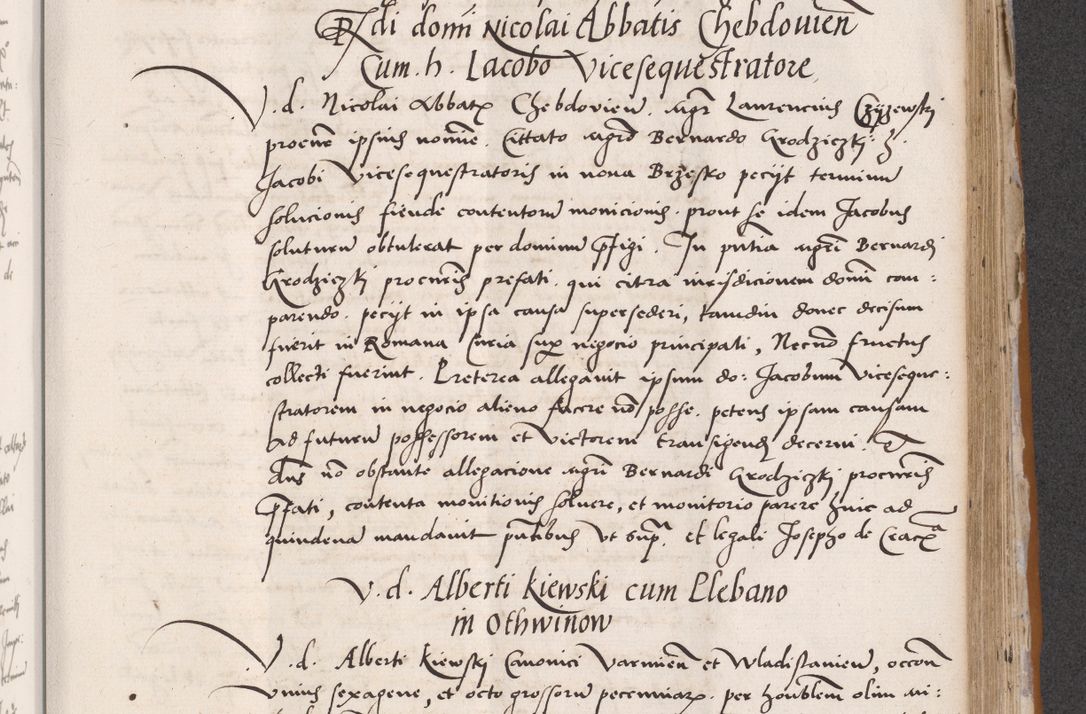 Rdi domi Nicolai Abbatis Chebdovień
Cum. h. Iacobo Vicesequestratore
V. d. Nicolai Abbatę Chebdovień. Mgr Laurencius Czyżewski
procňe ipsius nomie. Cittato Mgro Bernardo Grodziczki. h.
Jacobi Vicesequestratoris in nova Brzesko pecijt terminū
solucionis fiende contentorū monicionis. prout se idem Jacobus
soluturū obtulerat per dominū pfigi. In pntia Mgri Bernardi
Grodziczki procuris prefati. qui citra iurisdicionem domi com:
parendo. pecijt in ipsa causa supersederi, tamdiu donec decisum
fuerit in Romana Curia sup negocio principali, Necno fructus
collecti fuerint. Preterea allegavit ipsum do: Jacobum Viceseque:
stratorem in negocio alieno facere no posse. petens ipsam causam
ad futurū possessorem et victorem transigend decerni.
dns no obstante allegacione Mgri Bernardi Grodziczki procuris
pfati, contenta monitionis solvere, et monitorio parere huic ad
quindena mandavit pntibus ut supra. et legali Josepho de
V. d. Alberti Kiewski cum Plebano
in Othwinow
V. d. Alberti Kiewski Canonici Varmień et Wladislavień, occon
unius sexagene, et octo grossorū pecuniarę. per honblem olim Ni: